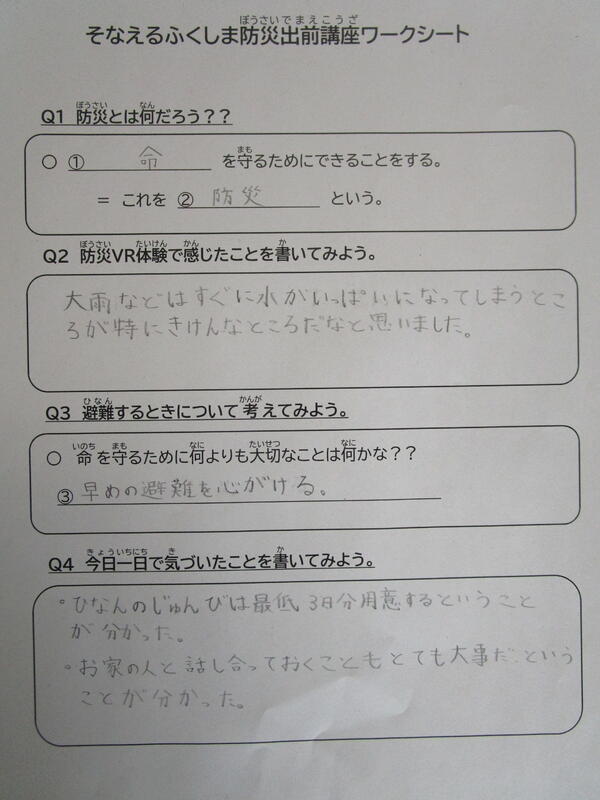 そなえるふくしま防災出前講座ワークシート
Q1 防災とは何だろう？？
○ ① 命 を守るためにできることをする。
＝ これを ② 防災 という。
Q2 防災VR体験で感じたことを書いてみよう。
大雨などはすぐに水がいっぱいになってしまうとこ
ろが特にきけんなところだなと思いました。
Q3 避難するときについて考えてみよう。
○ 命を守るために何よりも大切なことは何かな？？
③ 早めの避難を心がける。
Q4 今日一日で気づいたことを書いてみよう。
・ひなんのじゅんびは最低3日分用意するということ
が分かった。
・お家の人と話し合っておくこともとても大事だという
ことが分かった。